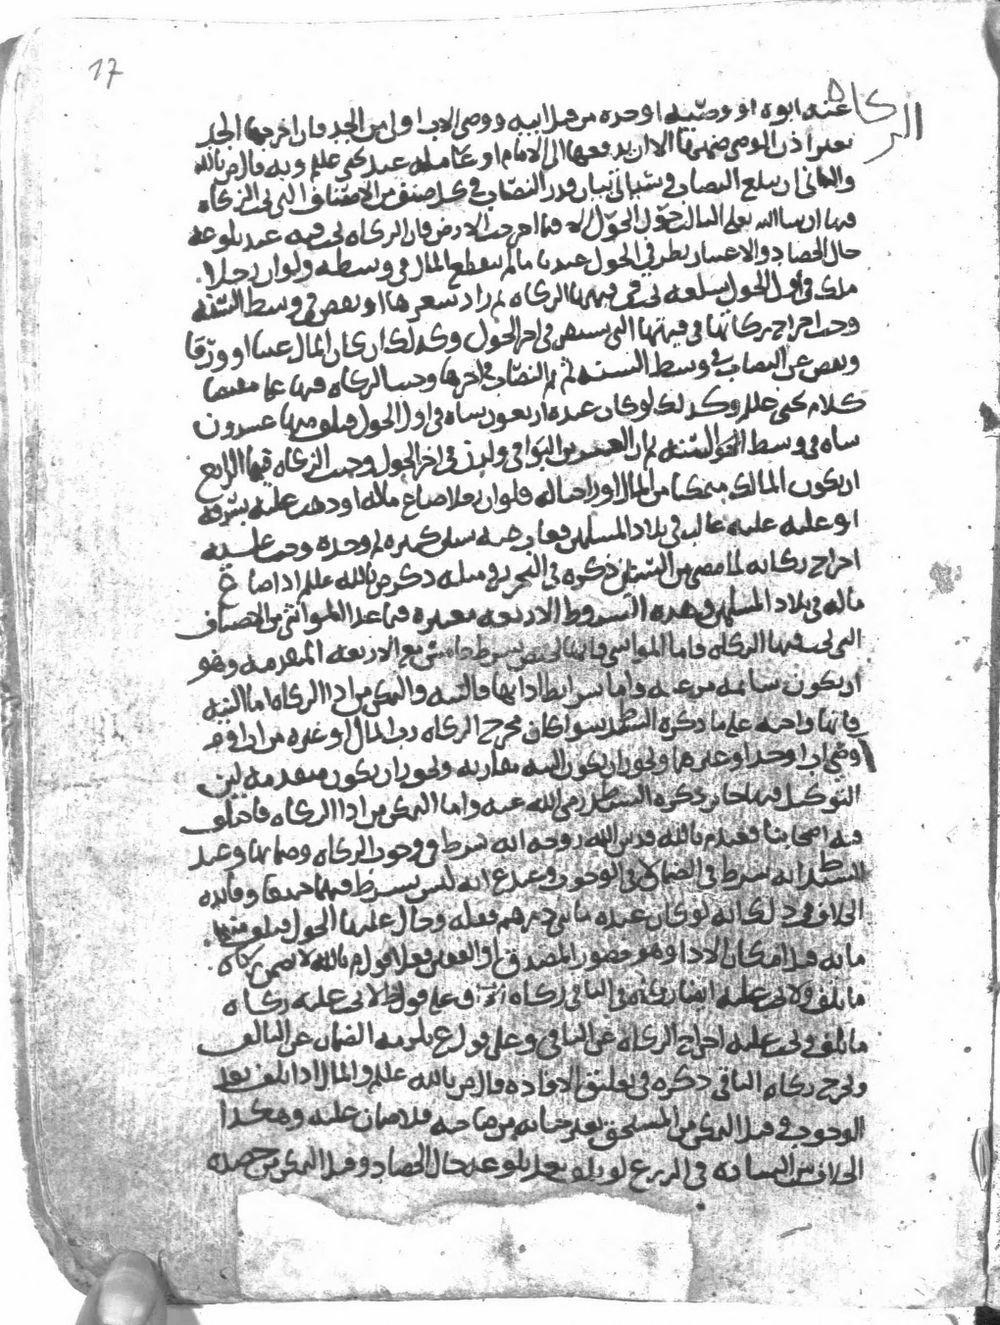 17
الزكاة
عنه ابوه او وصيه او جده من قبل ابيه ووصي الاب اولى من الجد فان اخرجها الجد
بغير اذن الوصي ضمنها الا ان يدفعها الى الامام او عامله عند يحيى علم وبه قال ص بالله
والثاني ان يبلغ النصاب في كل صنف من الاصناف التي تجب الزكاة
فيها ان شا الله تعالى الثالث حؤول الحول الا فيما اخرجت الارض فان الزكاة تجب فيه عند بلوغه
حال الحصاد والاعتبار بطرفي الحول عندنا ما لم ينقطع المال في وسطه ولو ان رجلا
ملك في اول الحول سلعة تجب في قيمتها الزكاة ثم زاد سعرها او نقص في وسط السنة
وجب اخراج زكاتها في قيمتها التي في اخر الحول وكذلك ان كان المال عينا او ورقا
ونقص عن النصاب في وسط السنة ثم تم النصاب في اخرها وجبت الزكاة فيها على مقتضا
كلام يحيى علم وكذلك لو كان عنده اربعون شاة في اول الحول فتلف منها عشرون
شاة في وسط السنة ثم ان العشرين البواقي ولدن في اخر الحول وجبت الزكاة فيها الرابع
ان يكون المالك متمكنا من المال او راجيا له فلو ان رجلا ضاع ماله او ذهب عليه بسرقة
او غلبه عليه غالب في بلاد المسلمين فغاب عنه سنين كثيرة ثم وجده وجب عليه
اخراج زكاته لما مضى من السنين ذكره في التحرير ومثله ذكر ص بالله علم اذا ضاع
ماله في بلاد المسلمين وهذه الشروط الاربعة معتبرة فيما عدا المواشي من الاصناف
التي تجب فيها الزكاة فاما المواشي فانها تختص بشرط خامس مع الاربعة المتقدمة وهو
ان يكون سائمة واما شرايط ادايها فالنية والتمكن من ادا الزكاة اما النية
فانها واجبة على ما ذكره السيد ط سوا كان مخرج الزكاة رب المال او غيره من
وصي اب او جد او غيرهما ويجوز ان يكون النية مقارنة ويجوز ان يكون متقدمة لان
التوكيل فيها جايز ذكره السيد ط رضي الله عنه واما التمكن من ادا الزكاة فاختلف
فيه اصحابنا فعند م بالله قدس الله روحه انه شرط في وجوب الزكاة وضمانها وعند
السيد ط انه شرط في الضمان لا في الوجوب وعند ع انه ليس بشرط فيهما جميعا وفايدة
الخلاف في ذلك انه لو كان عنده مايتي درهم فعلة وحال عليها الحول فتلف منها
مايه قبل امكان الادا وهو حضور المصدق او الفقير فعلى قول م بالله لا يضمن زكاة
ما تلف ولا تجب عليه في الباقي زكاة وعلى قول ط لا تجب عليه زكاة
ما تلف وتجب عليه اخراج الزكاة عن الباقي وعلى قول ع يلزمه الضمان عن التالف
وتخرج زكاة الباقي ذكره في تعليق الافادة قال ص بالله علم والمال اذا تلف بعد
الوجوب وقبل التمكن من المستحق بغير خيانة من صاحبه فلا ضمان عليه وهكذا
الخلاف بين السادة في الزرع لو تلف بعد بلوغه حال الحصاد وقبل التمكن من حصده